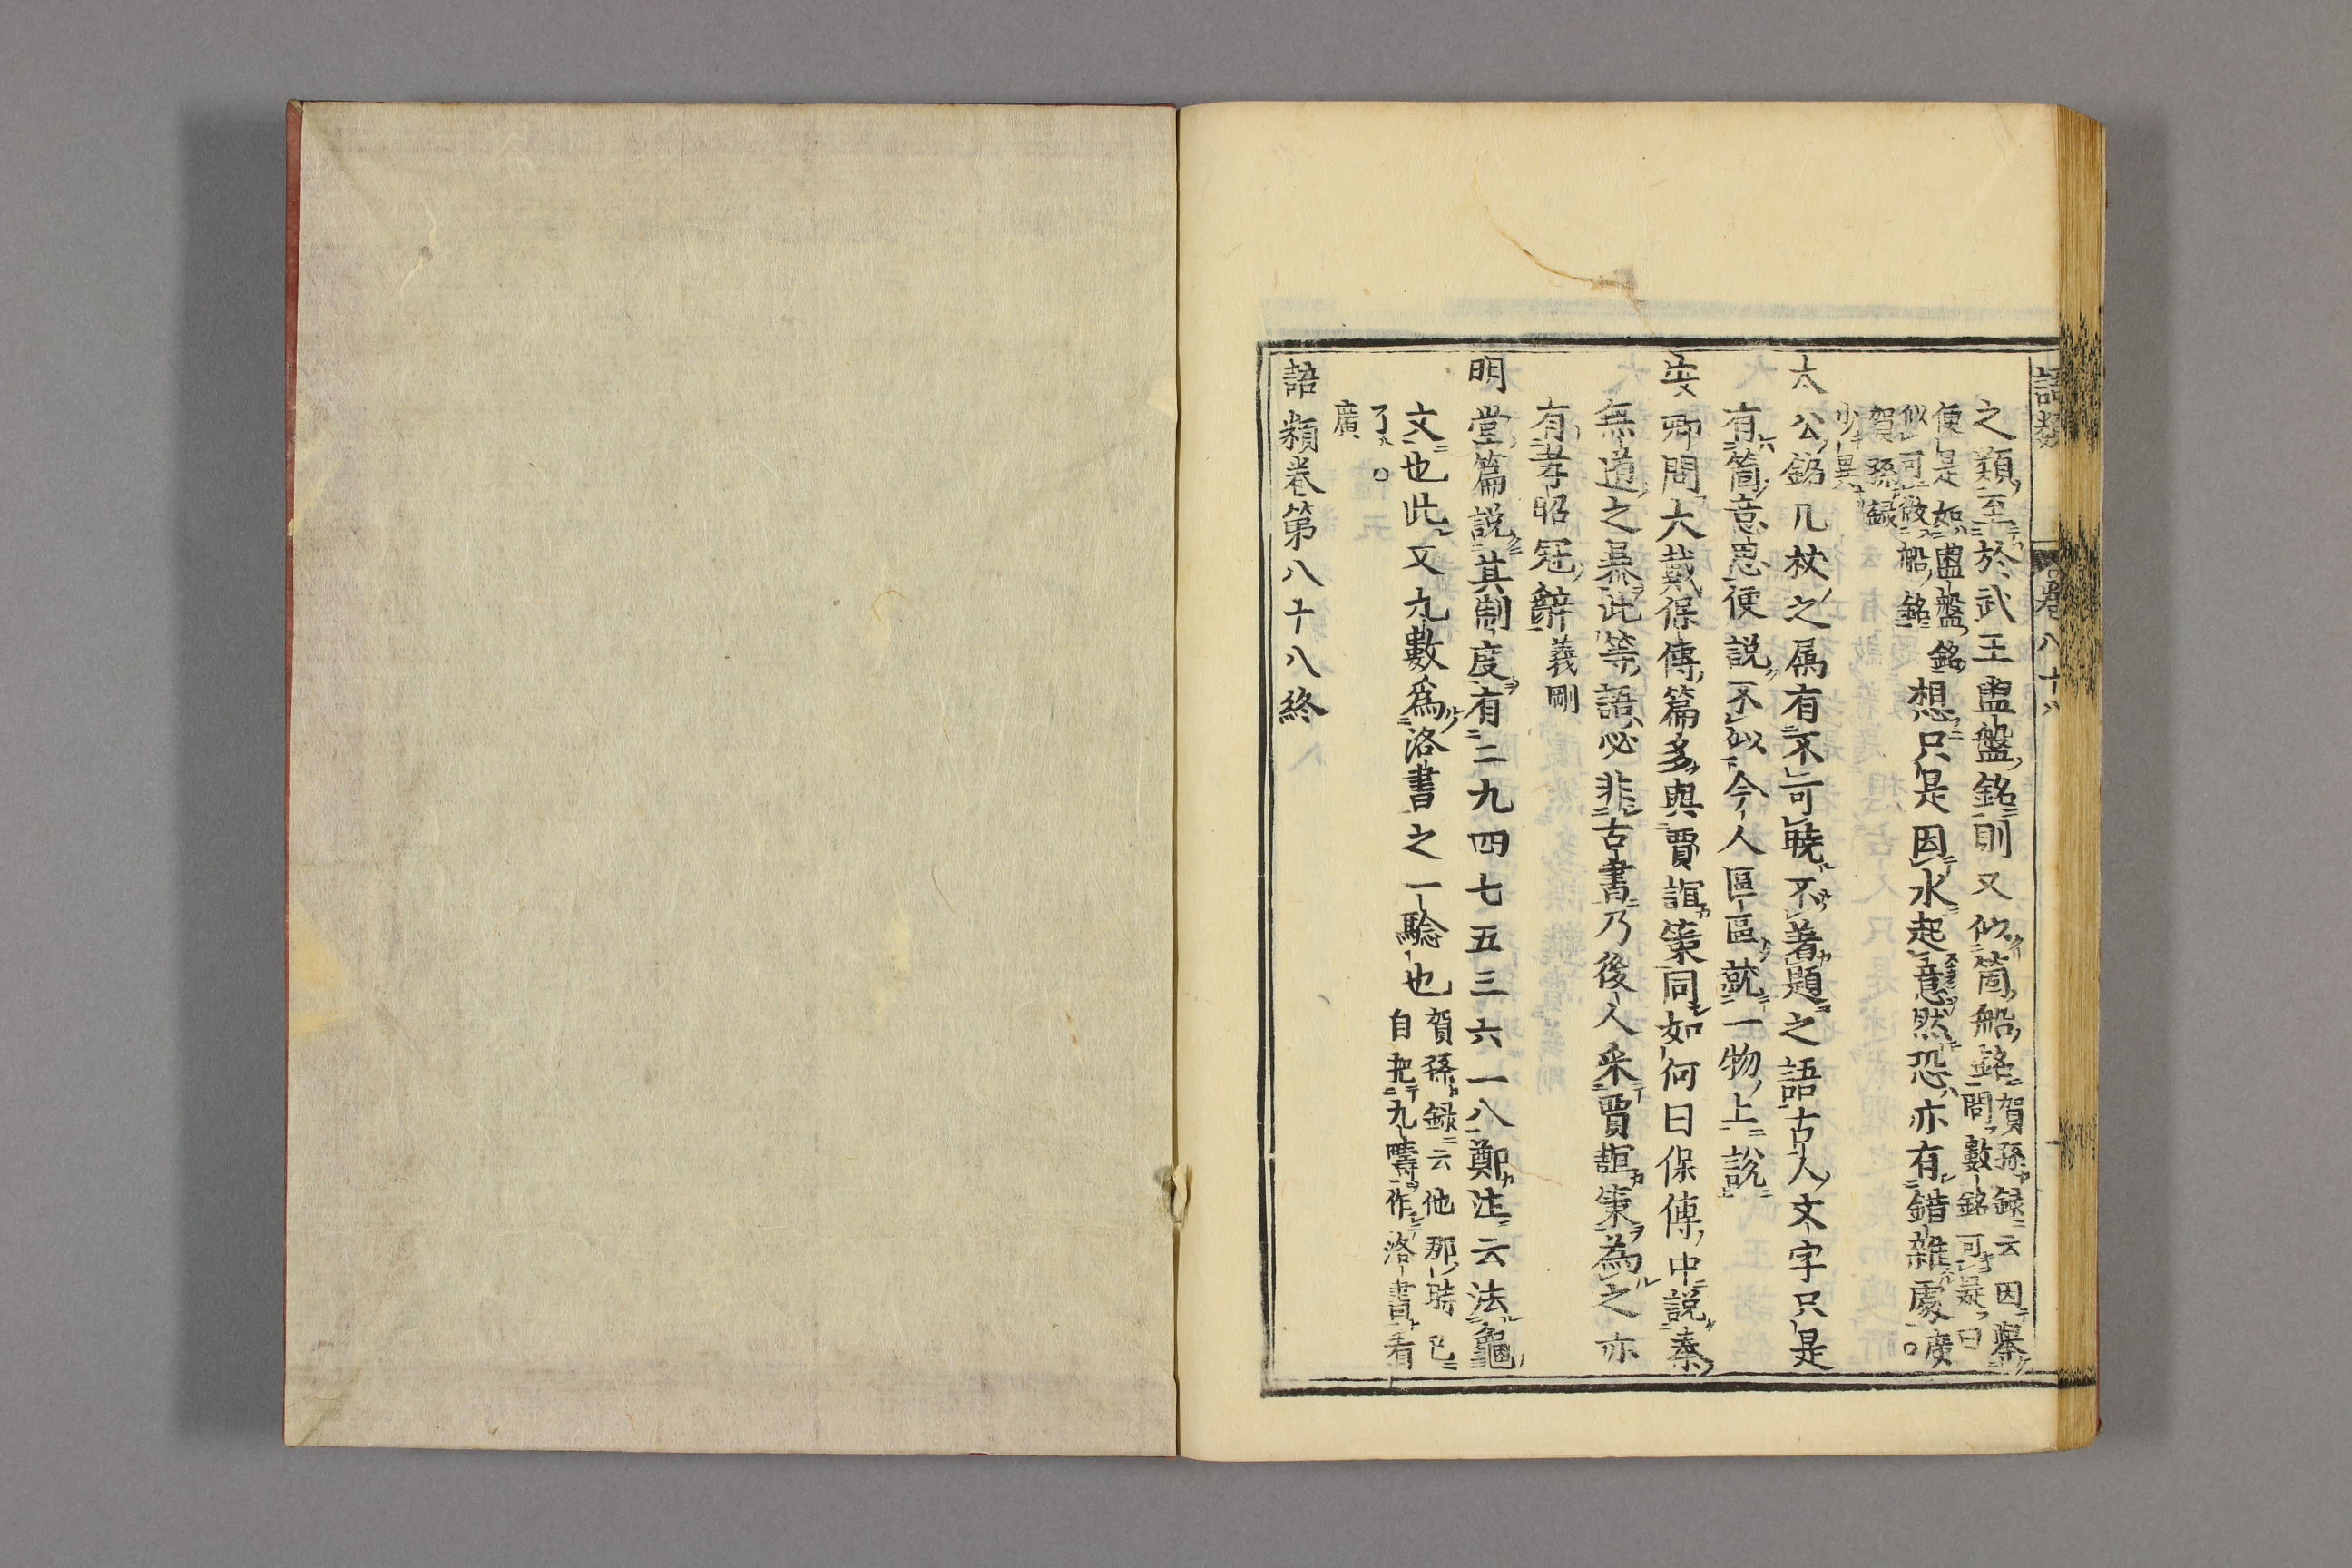 語類 卷八十八
之類至於武王盥盤銘則又似箇船銘賀孫録云因擧
問數銘可疑曰
便是如盥盤銘想只是因水起意然恐亦有錯雜處廣
似可做船銘
賀孫録
少異
太公銘几杖之属有不可曉不著題之語古人文字只是
有箇意思便説不似今人區區就一物上説
安卿問大戴保傅篇多與賈誼策同如何曰保傅中説秦
無道之暴此等語必非古書乃後人采賈誼策為之亦
有孝昭冠辭義剛
明堂篇説其制度有二九四七五三六一八鄭注云法龜
文也此文九數爲洛書之一驗也賀孫録云他那時已
自把九疇作洛書看
了
廣
語類卷第八十八終